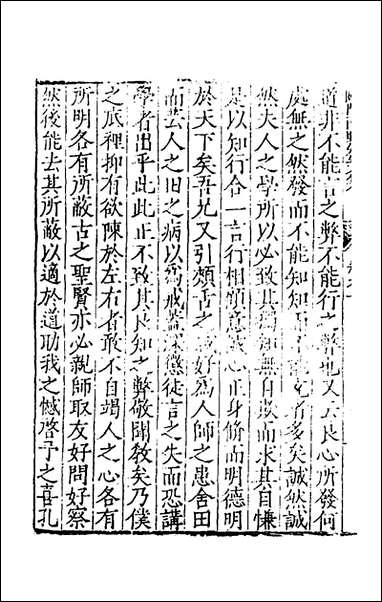 道非不能言之弊不能行之弊也又云良心所發何
處無之然發而不能知知而不能充者多矣誠然誠
然夫人之學所以必致其獨知無自欺而求其自慊
是以知行合一言行相顧意誠心正身脩而明德明
於天下矣吾兄又引頰舌之好為人師之患舍田
而芸人之田之病以為戒蓋深懲徒言之失而恐講
學者出乎此此正不致其良知之弊敬聞教矣乃僕
之底裡抑有欲陳於左右者敢不自竭人之心各有
所明各有所蔽古之聖賢亦必親師取友好問好察
然後能去其所蔽以適於道助我之憾啓予之喜孔